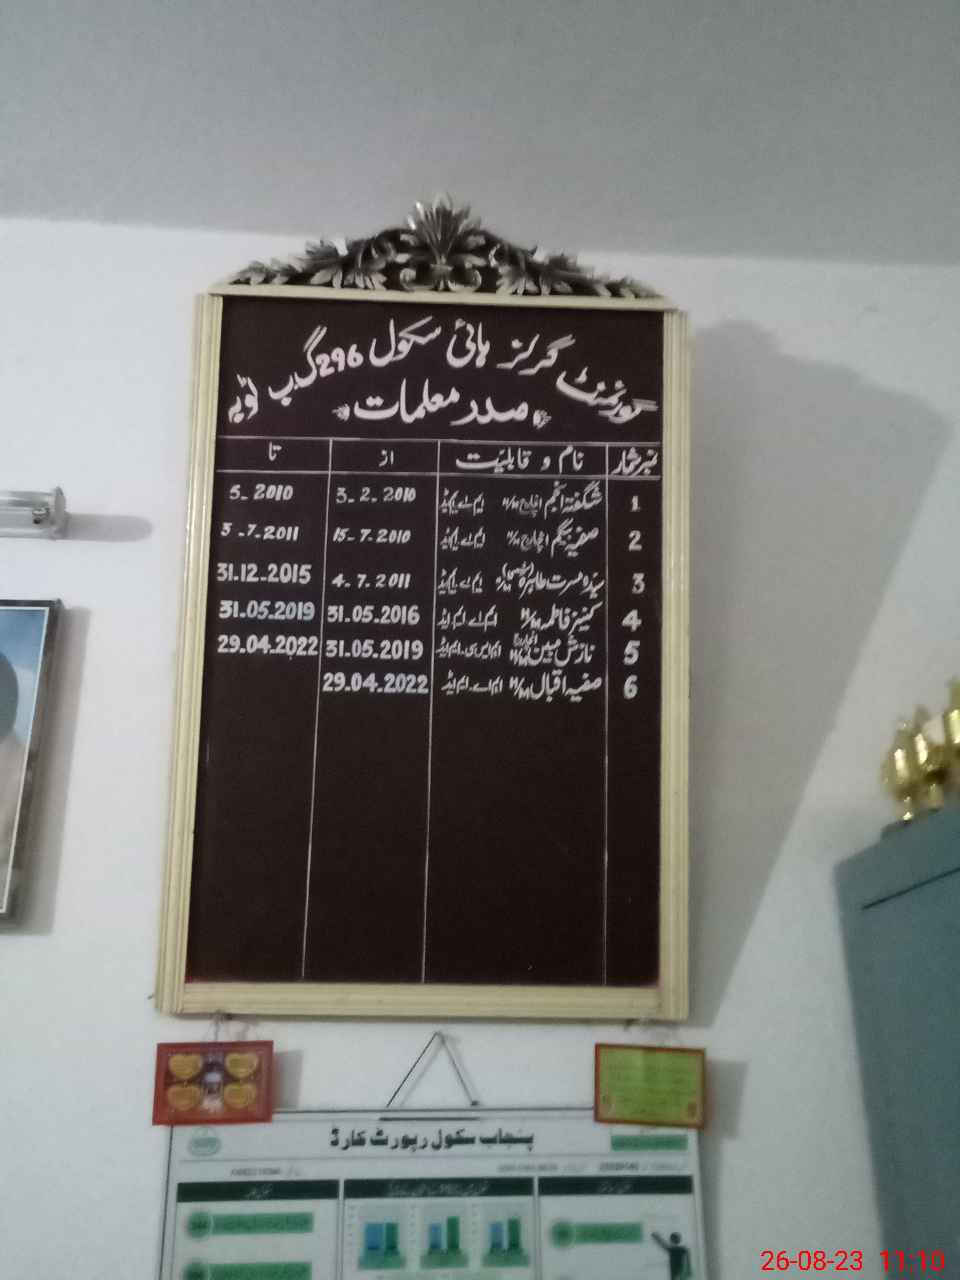 گورنمنٹ گرلز ہائی سکول 296گ ب ٹوبہ
صدر معلمات
نمبر شمار نام و قابلیّت از تا
1 شگفتہ انجم انچارج H/M ایم اے ایم ایڈ 3-2-2010 5-2010
2 صفیہ بیگم انچارج H/M ایم اے ایم ایڈ 15-7-2010 3-7-2011
3 سیدہ مسرت طاہرہ ایم اے ایم ایڈ 4-7-2011 31-12-2015
4 کنیز فاطمہ H/M ایم اے ایم ایڈ 31-05-2016 31-05-2019
5 نازش مبین انچارج H/M ایم ایس سی ایم ایڈ 31-05-2019 29-04-2022
6 صفیہ اقبال H/M ایم اے ایم ایڈ 29-04-2022
پنجاب سکول رپورٹ کارڈ
26-08-23 11:10